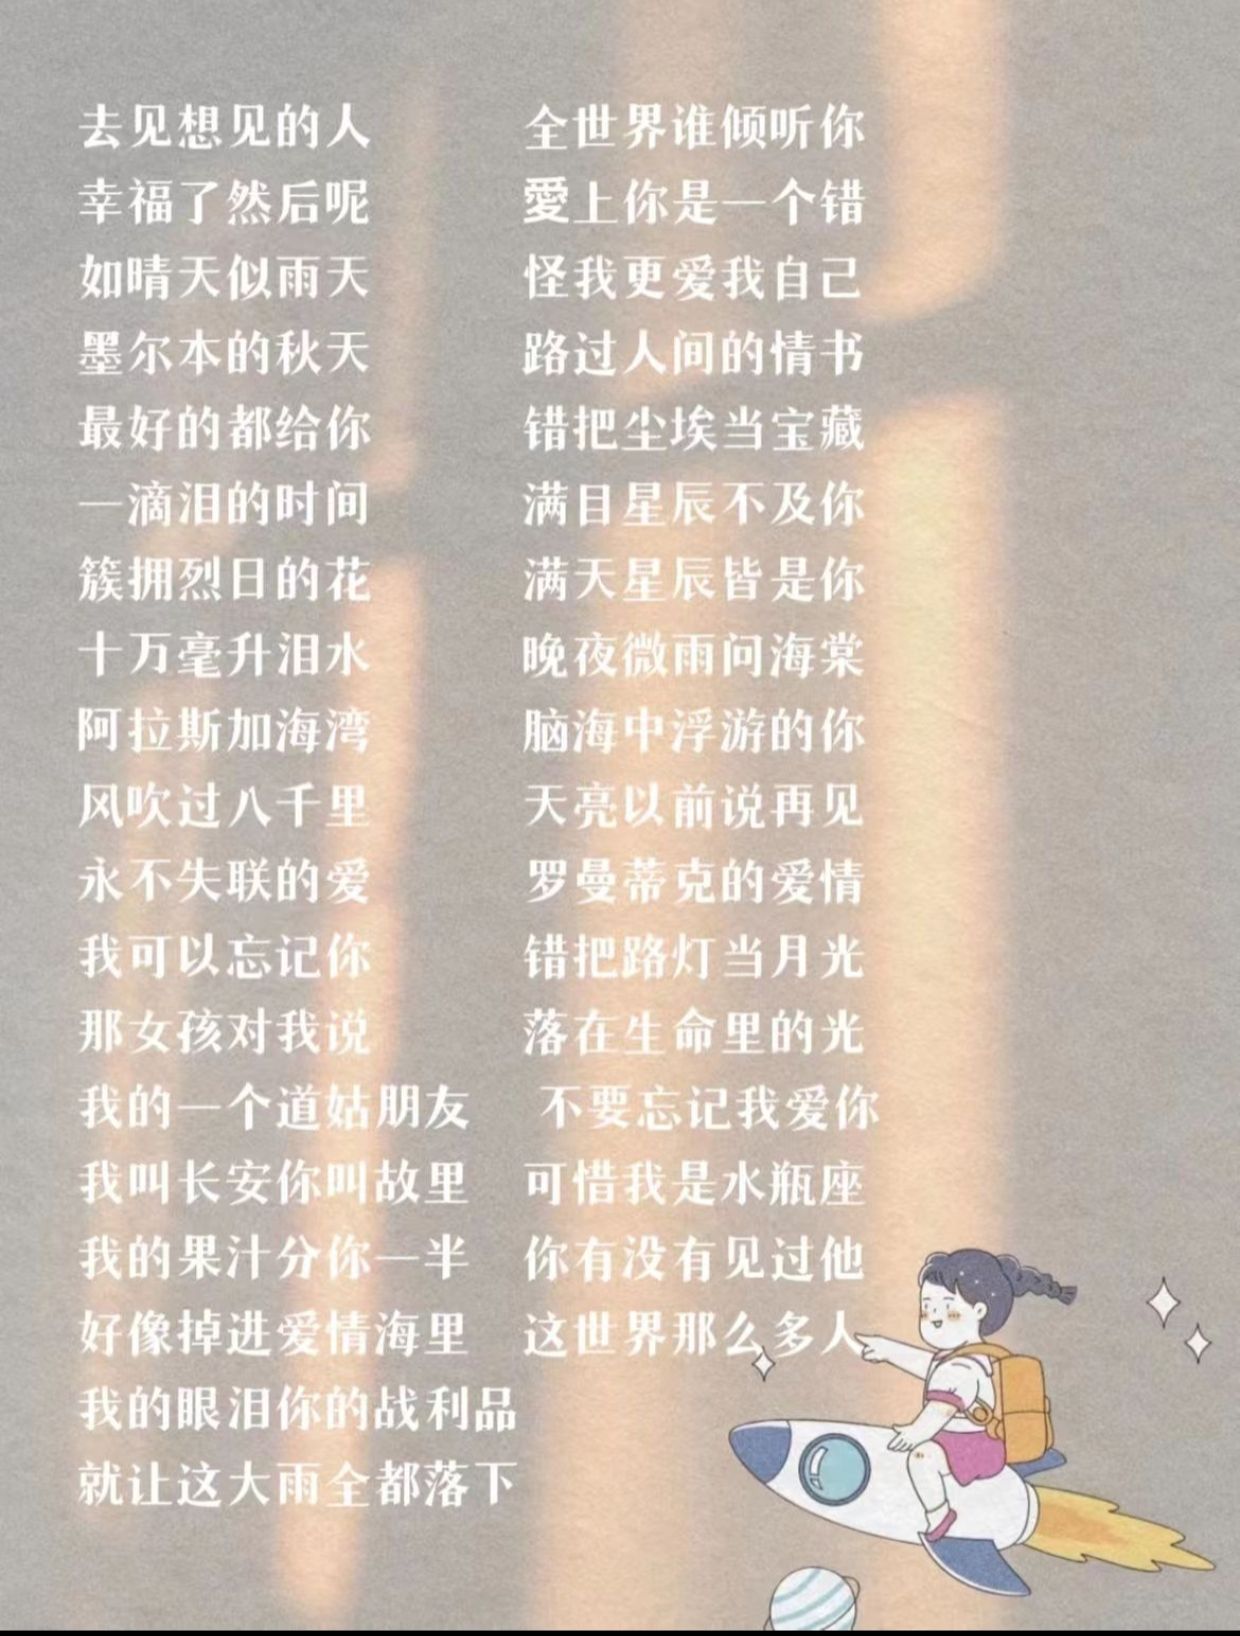 去见想见的人
幸福了然后呢
如晴天似雨天
墨尔本的秋天
最好的都给你
一滴泪的时间
簇拥烈日的花
十万毫升泪水
阿拉斯加海湾
风吹过八千里
永不失联的爱
我可以忘记你
那女孩对我说
我的一个道姑朋友
我叫长安你叫故里
我的果汁分你一半
好像掉进爱情海里
我的眼泪你的战利品
就让这大雨全都落下
全世界谁倾听你
愛上你是一个错
怪我更爱我自己
路过人间的情书
错把尘埃当宝藏
满目星辰不及你
满天星辰皆是你
晚夜微雨问海棠
脑海中浮游的你
天亮以前说再见
罗曼蒂克的爱情
错把路灯当月光
落在生命里的光
不要忘记我爱你
可惜我是水瓶座
你有没有见过他
这世界那么多人